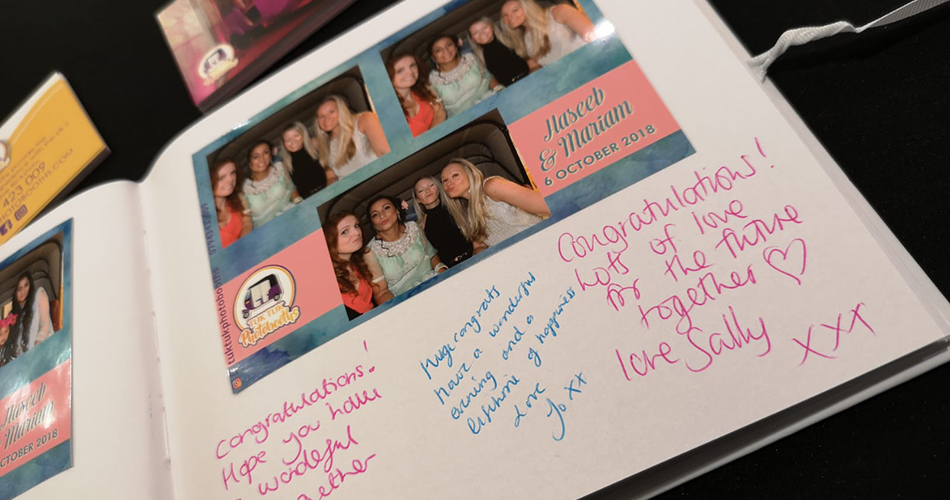 423 009
Haseeb
& Mariam
6 OCTOBER 2018
TUK TUK
Photobooths
tuktukphotobooths
Haseeb
Mariam
OCTOBER 2018
Congratulations!
Hope you have
a wonderful
together
Huge congrats
have a wonderful
evening and a
lifetime of happiness
Love
Jo xx
Congratulations!
Lots of love
for the future
together ♡
love Sally
xxx